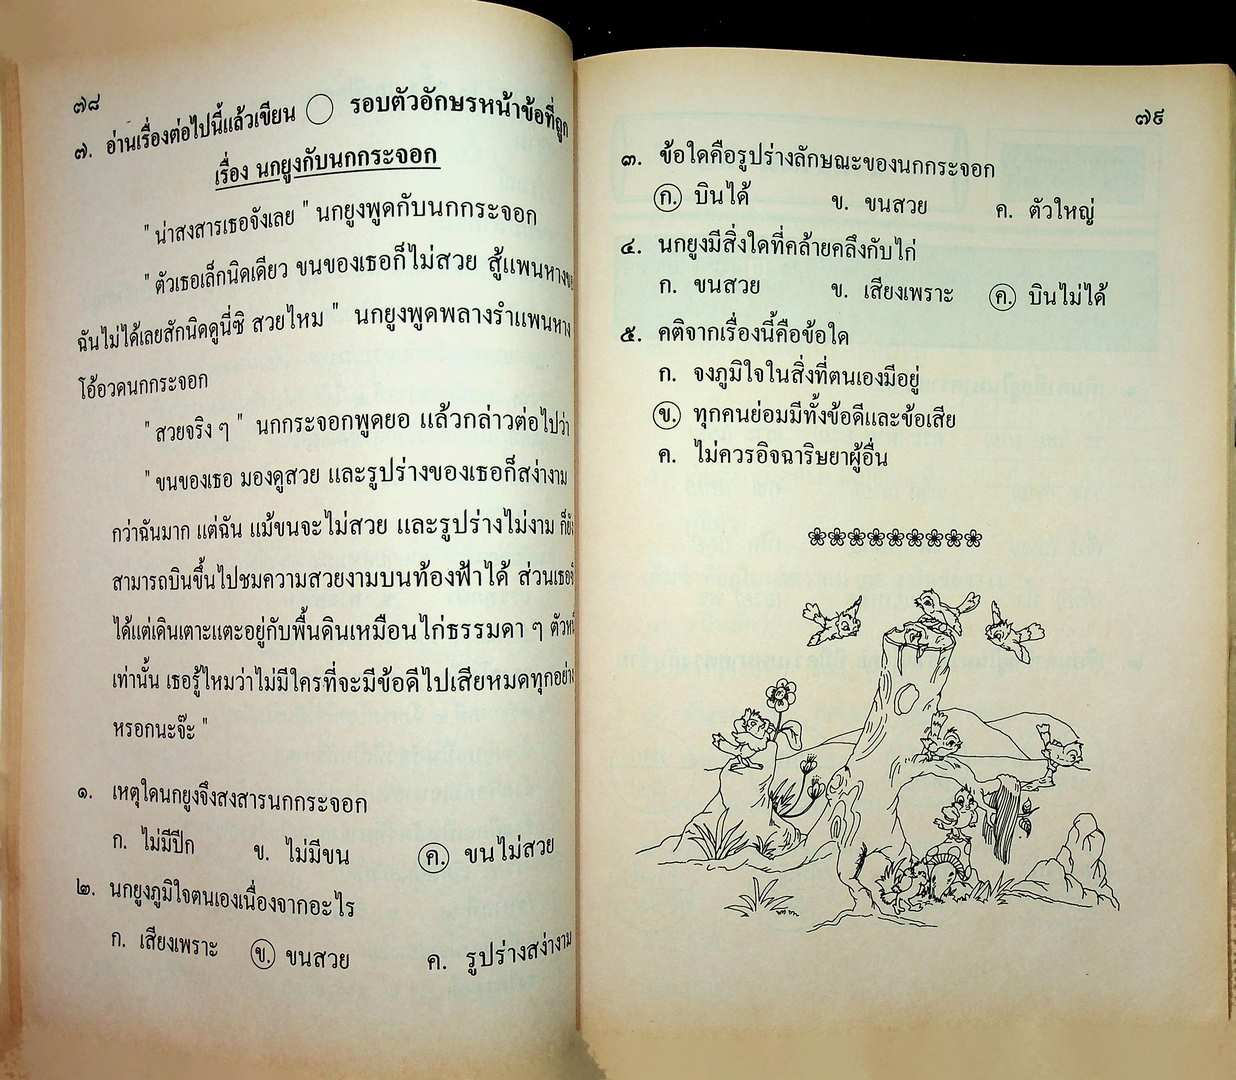 ๗๘
๗. อ่านเรื่องต่อไปนี้แล้วเขียน ◯ รอบตัวอักษรหน้าข้อที่ถูก
เรื่อง นกยูงกับนกกระจอก
" น่าสงสารเธอจังเลย " นกยูงพูดกับนกกระจอก
" ตัวเธอเล็กนิดเดียว ขนของเธอก็ไม่สวย สู้แพนหาง
ฉันไม่ได้เลยสักนิดดูนี่ซิ สวยไหม " นกยูงพูดพลางรำแพนหาง
โอ้อวดนกกระจอก
" สวยจริง ๆ " นกกระจอกพูดยอ แล้วกล่าวต่อไปว่า
" ขนของเธอ มองดูสวย และรูปร่างของเธอก็สง่างาม
กว่าฉันมาก แต่ฉัน แม้ขนจะไม่สวย และรูปร่างไม่งาม ก็ยัง
สามารถบินขึ้นไปชมความสวยงามบนท้องฟ้าได้ ส่วนเธอ
ได้แต่เดินเตาะแตะอยู่กับพื้นดินเหมือนไก่ธรรมดา ๆ ตัว
เท่านั้น เธอรู้ไหมว่าไม่มีใครที่จะมีข้อดีไปเสียหมดทุกอย่าง
หรอกนะจ๊ะ "
๑. เหตุใดนกยูงจึงสงสารนกกระจอก
ก. ไม่มีปีก ข. ไม่มีขน ค. ขนไม่สวย
๒. นกยูงภูมิใจตนเองเนื่องจากอะไร
ก. เสียงเพราะ ข. ขนสวย ค. รูปร่างสง่างาม
๗๙
๓. ข้อใดคือรูปร่างลักษณะของนกกระจอก
ก. บินได้ ข. ขนสวย ค. ตัวใหญ่
๔. นกยูงมีสิ่งใดที่คล้ายคลึงกับไก่
ก. ขนสวย ข. เสียงเพราะ ค. บินไม่ได้
๕. คติจากเรื่องนี้คือข้อใด
ก. จงภูมิใจในสิ่งที่ตนเองมีอยู่
ข. ทุกคนย่อมมีทั้งข้อดีและข้อเสีย
ค. ไม่ควรอิจฉาริษยาผู้อื่น